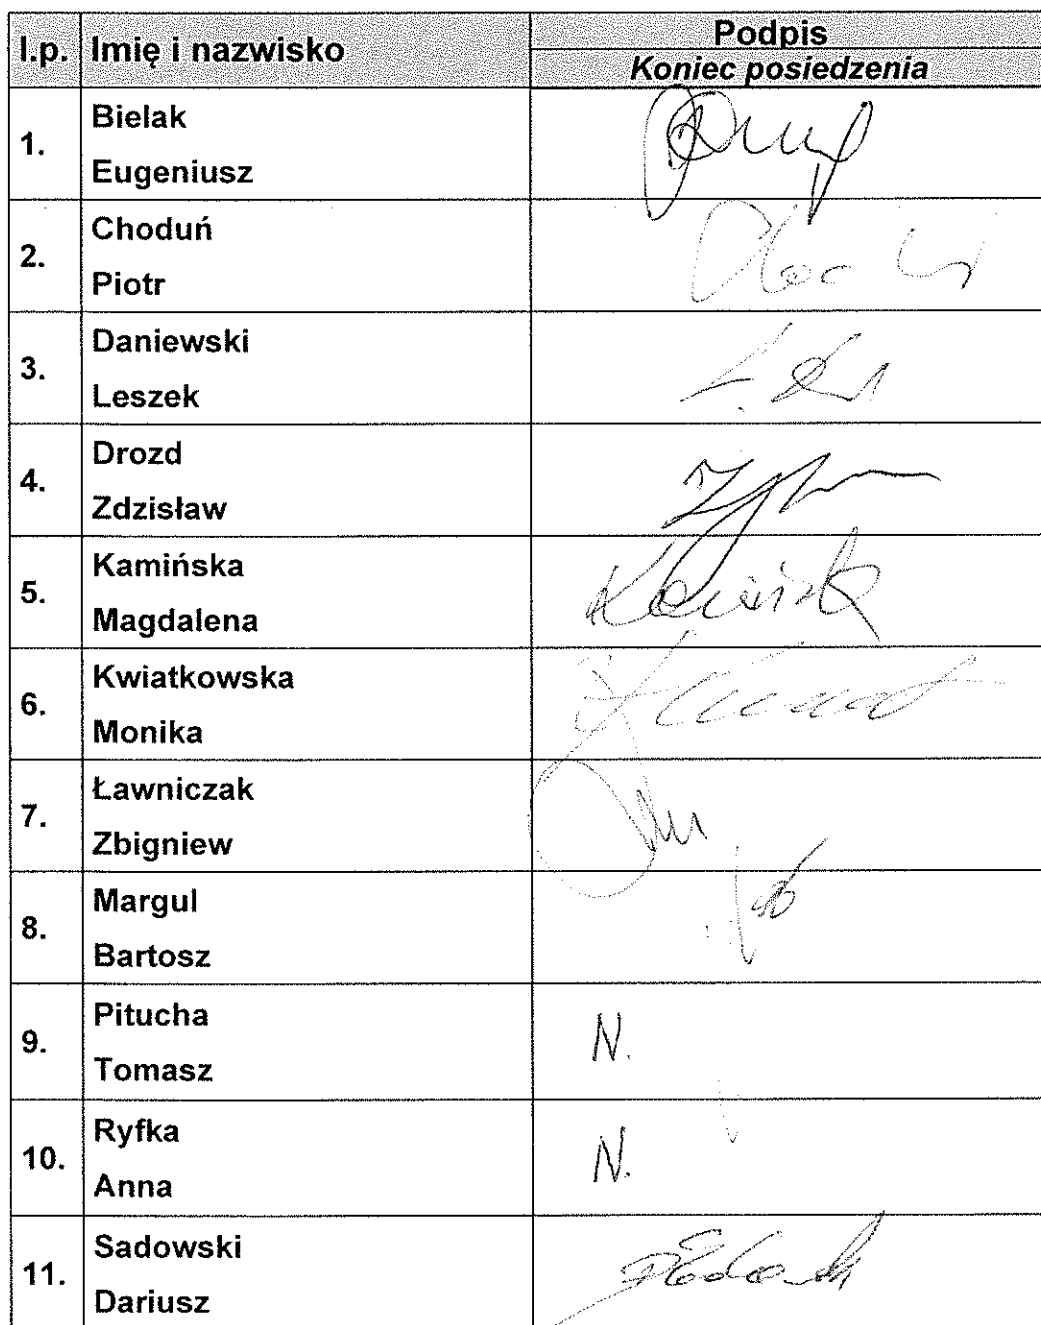 l.p. Imię i nazwisko Podpis
Koniec posiedzenia
1. Bielak
Eugeniusz
2. Choduń
Piotr
3. Daniewski
Leszek
4. Drozd
Zdzisław
5. Kamińska
Magdalena
6. Kwiatkowska
Monika
7. Ławniczak
Zbigniew
8. Margul
Bartosz
9. Pitucha
Tomasz
N.
10. Ryfka
Anna
N.
11. Sadowski
Dariusz